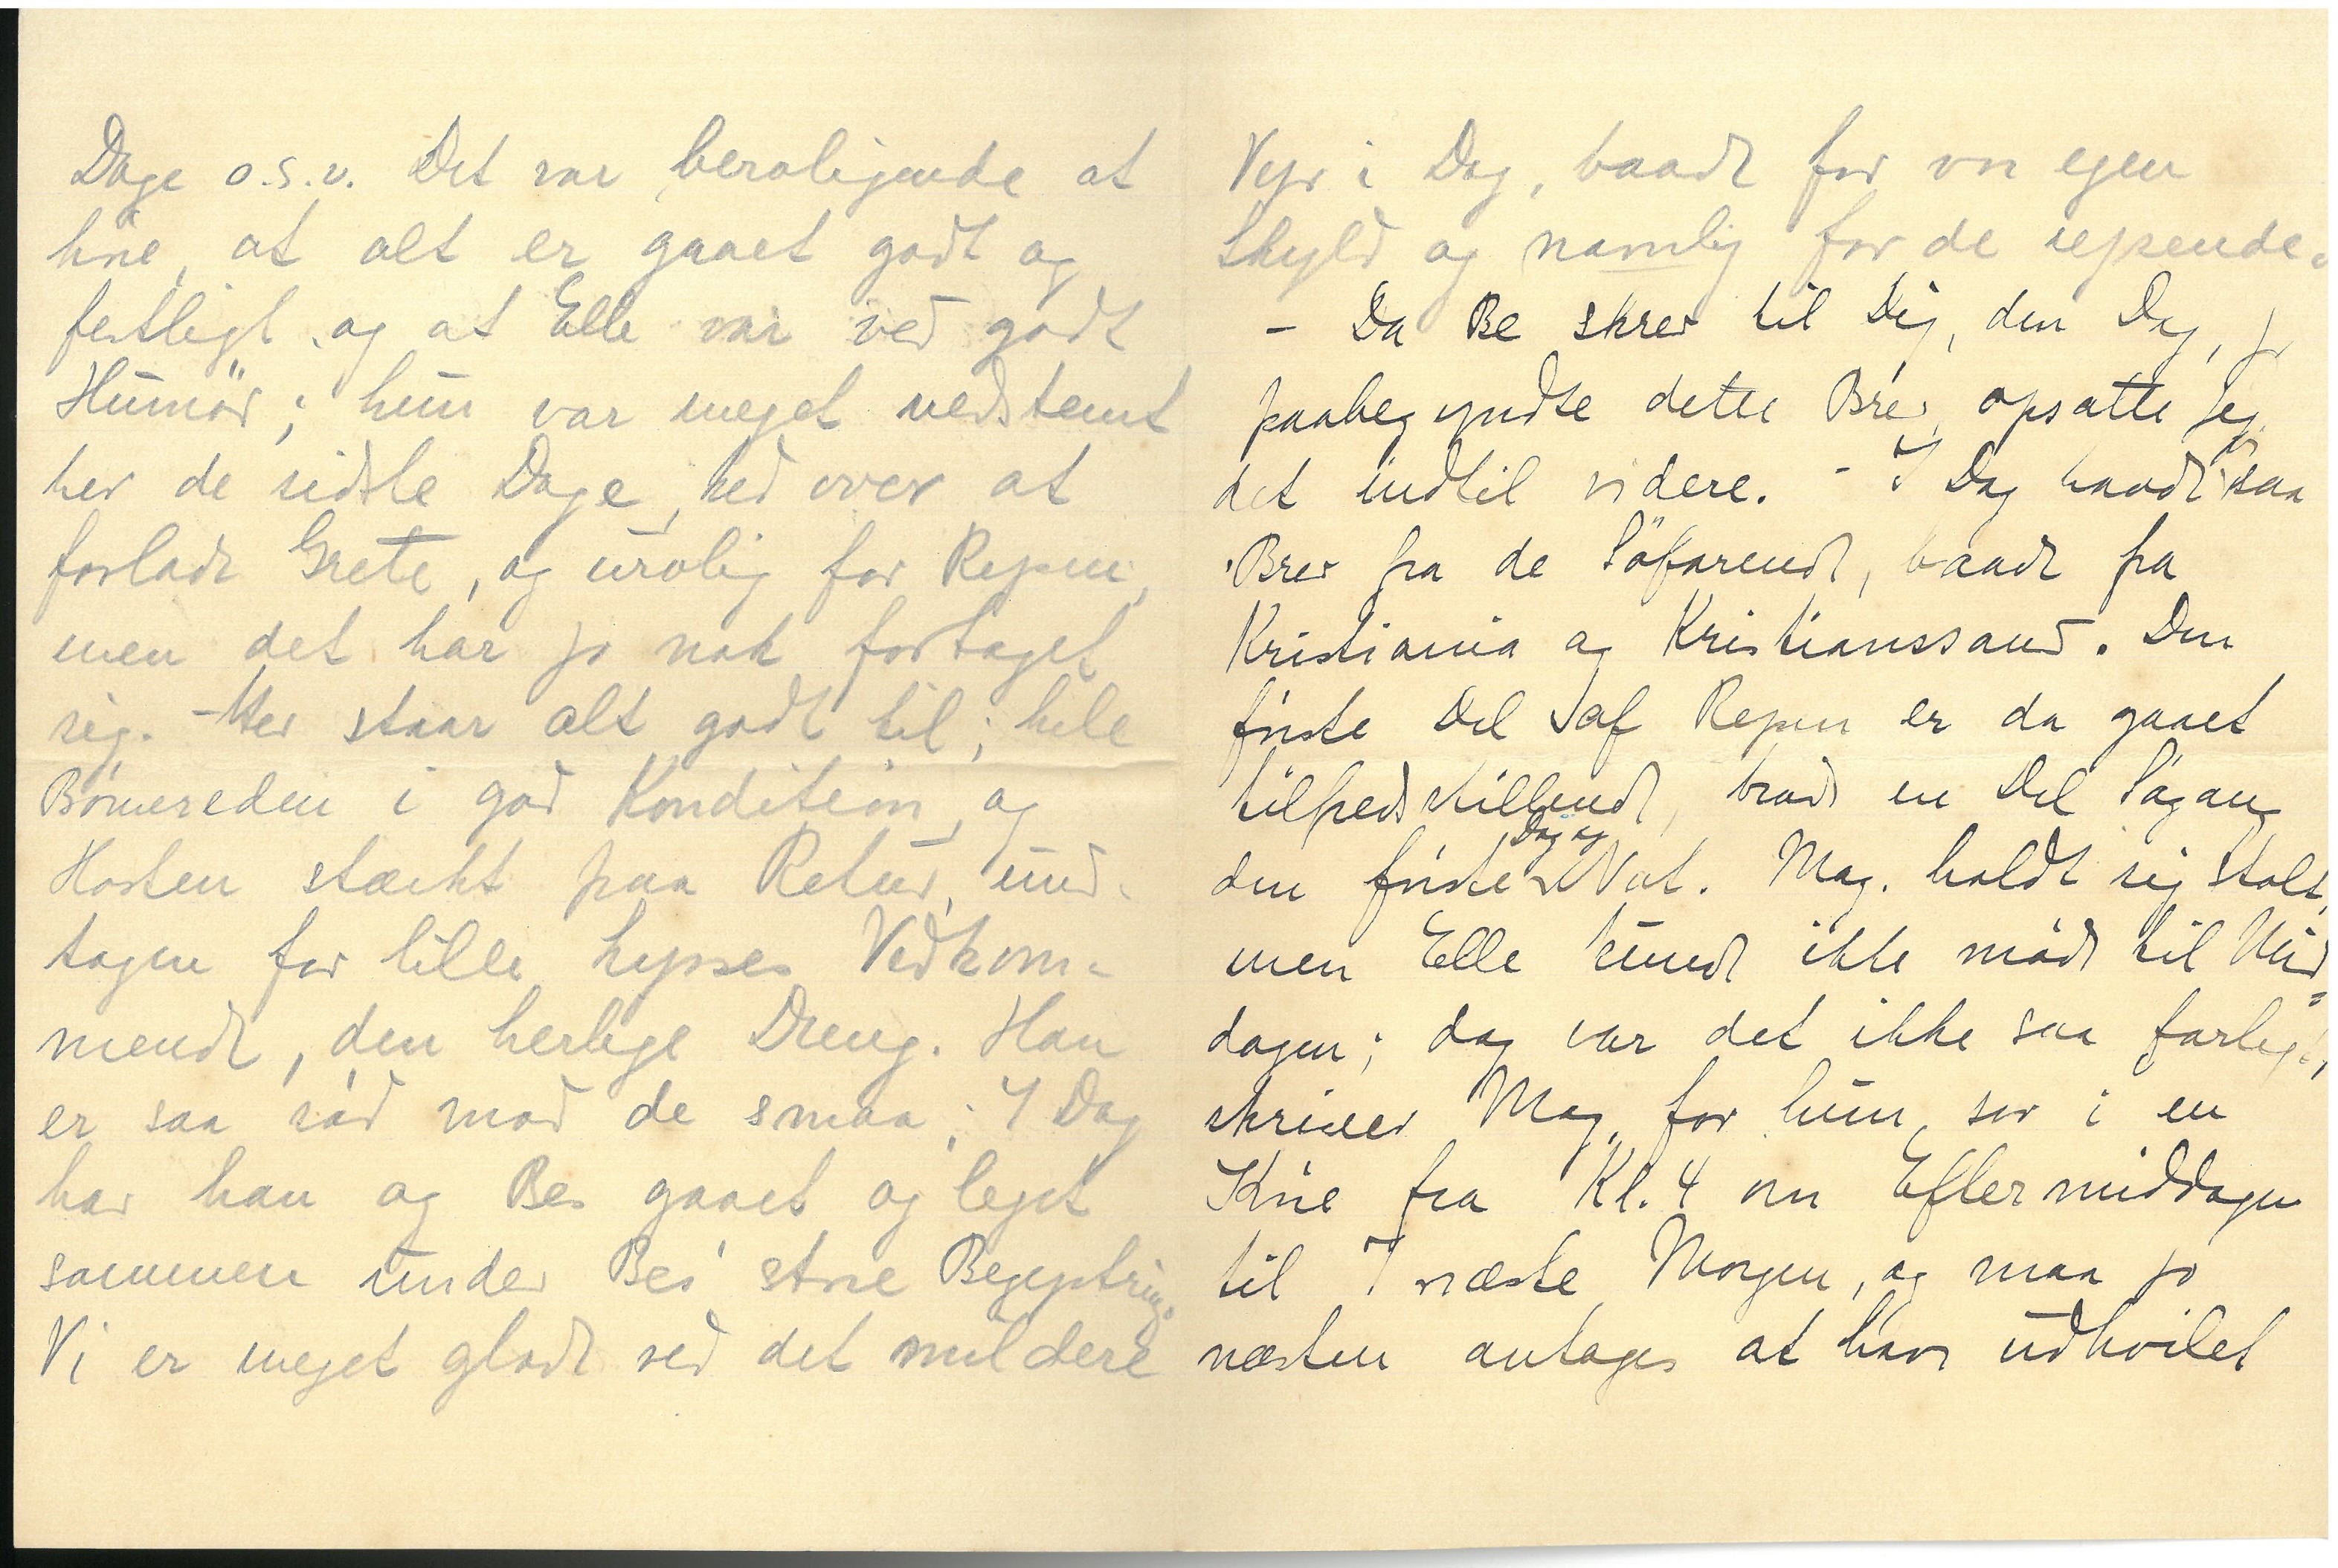 Dage o.s.v. Det var beroligende at
høre, at alt er gaaet godt og
festligt og at Elle var ved godt
Humør; hun var meget nedstemt
her de sidste Dage, ked over at
forlade Grete, og urolig for Rejsen,
men det har jo nok fortaget
sig. – Her staar alt godt til; hele
Børnereden i god Kondition, og
Hosten stærkt paa Retur, und-
tagen for lille Vedkom-
mende, den herlige Dreng. Han
er saa sød mod de smaa; I Dag
har han og Bes gaaet og leget
sammen under Bes' store Begejstring.
Vi er meget glade ved det mildere
Vejr i Dag, baade for vor egen
Skyld og navnlig for de rejsende.
– Da Be skrev til Dig, den Dag, jeg
paabegyndte dette Brev, opsatte jeg
det indtil videre. – I Dag havde vi saa
Brev fra de Søfarende, baade fra
Kristiania og Kristianssand. Den
første Del af Rejsen er da gaaet
tilfredsstillende, trods en Del Søgang
den første Dag og Nat. Mag. holdt sig stolt,
men Elle kunde ikke møde til Mid-
dagen; dog var det ikke saa farligt,
skriver Mag, for hun sov i en
Køre fra Kl. 4 om Eftermiddagen
til 7 næste Morgen, og maa jo
næsten antages at have udhvilet